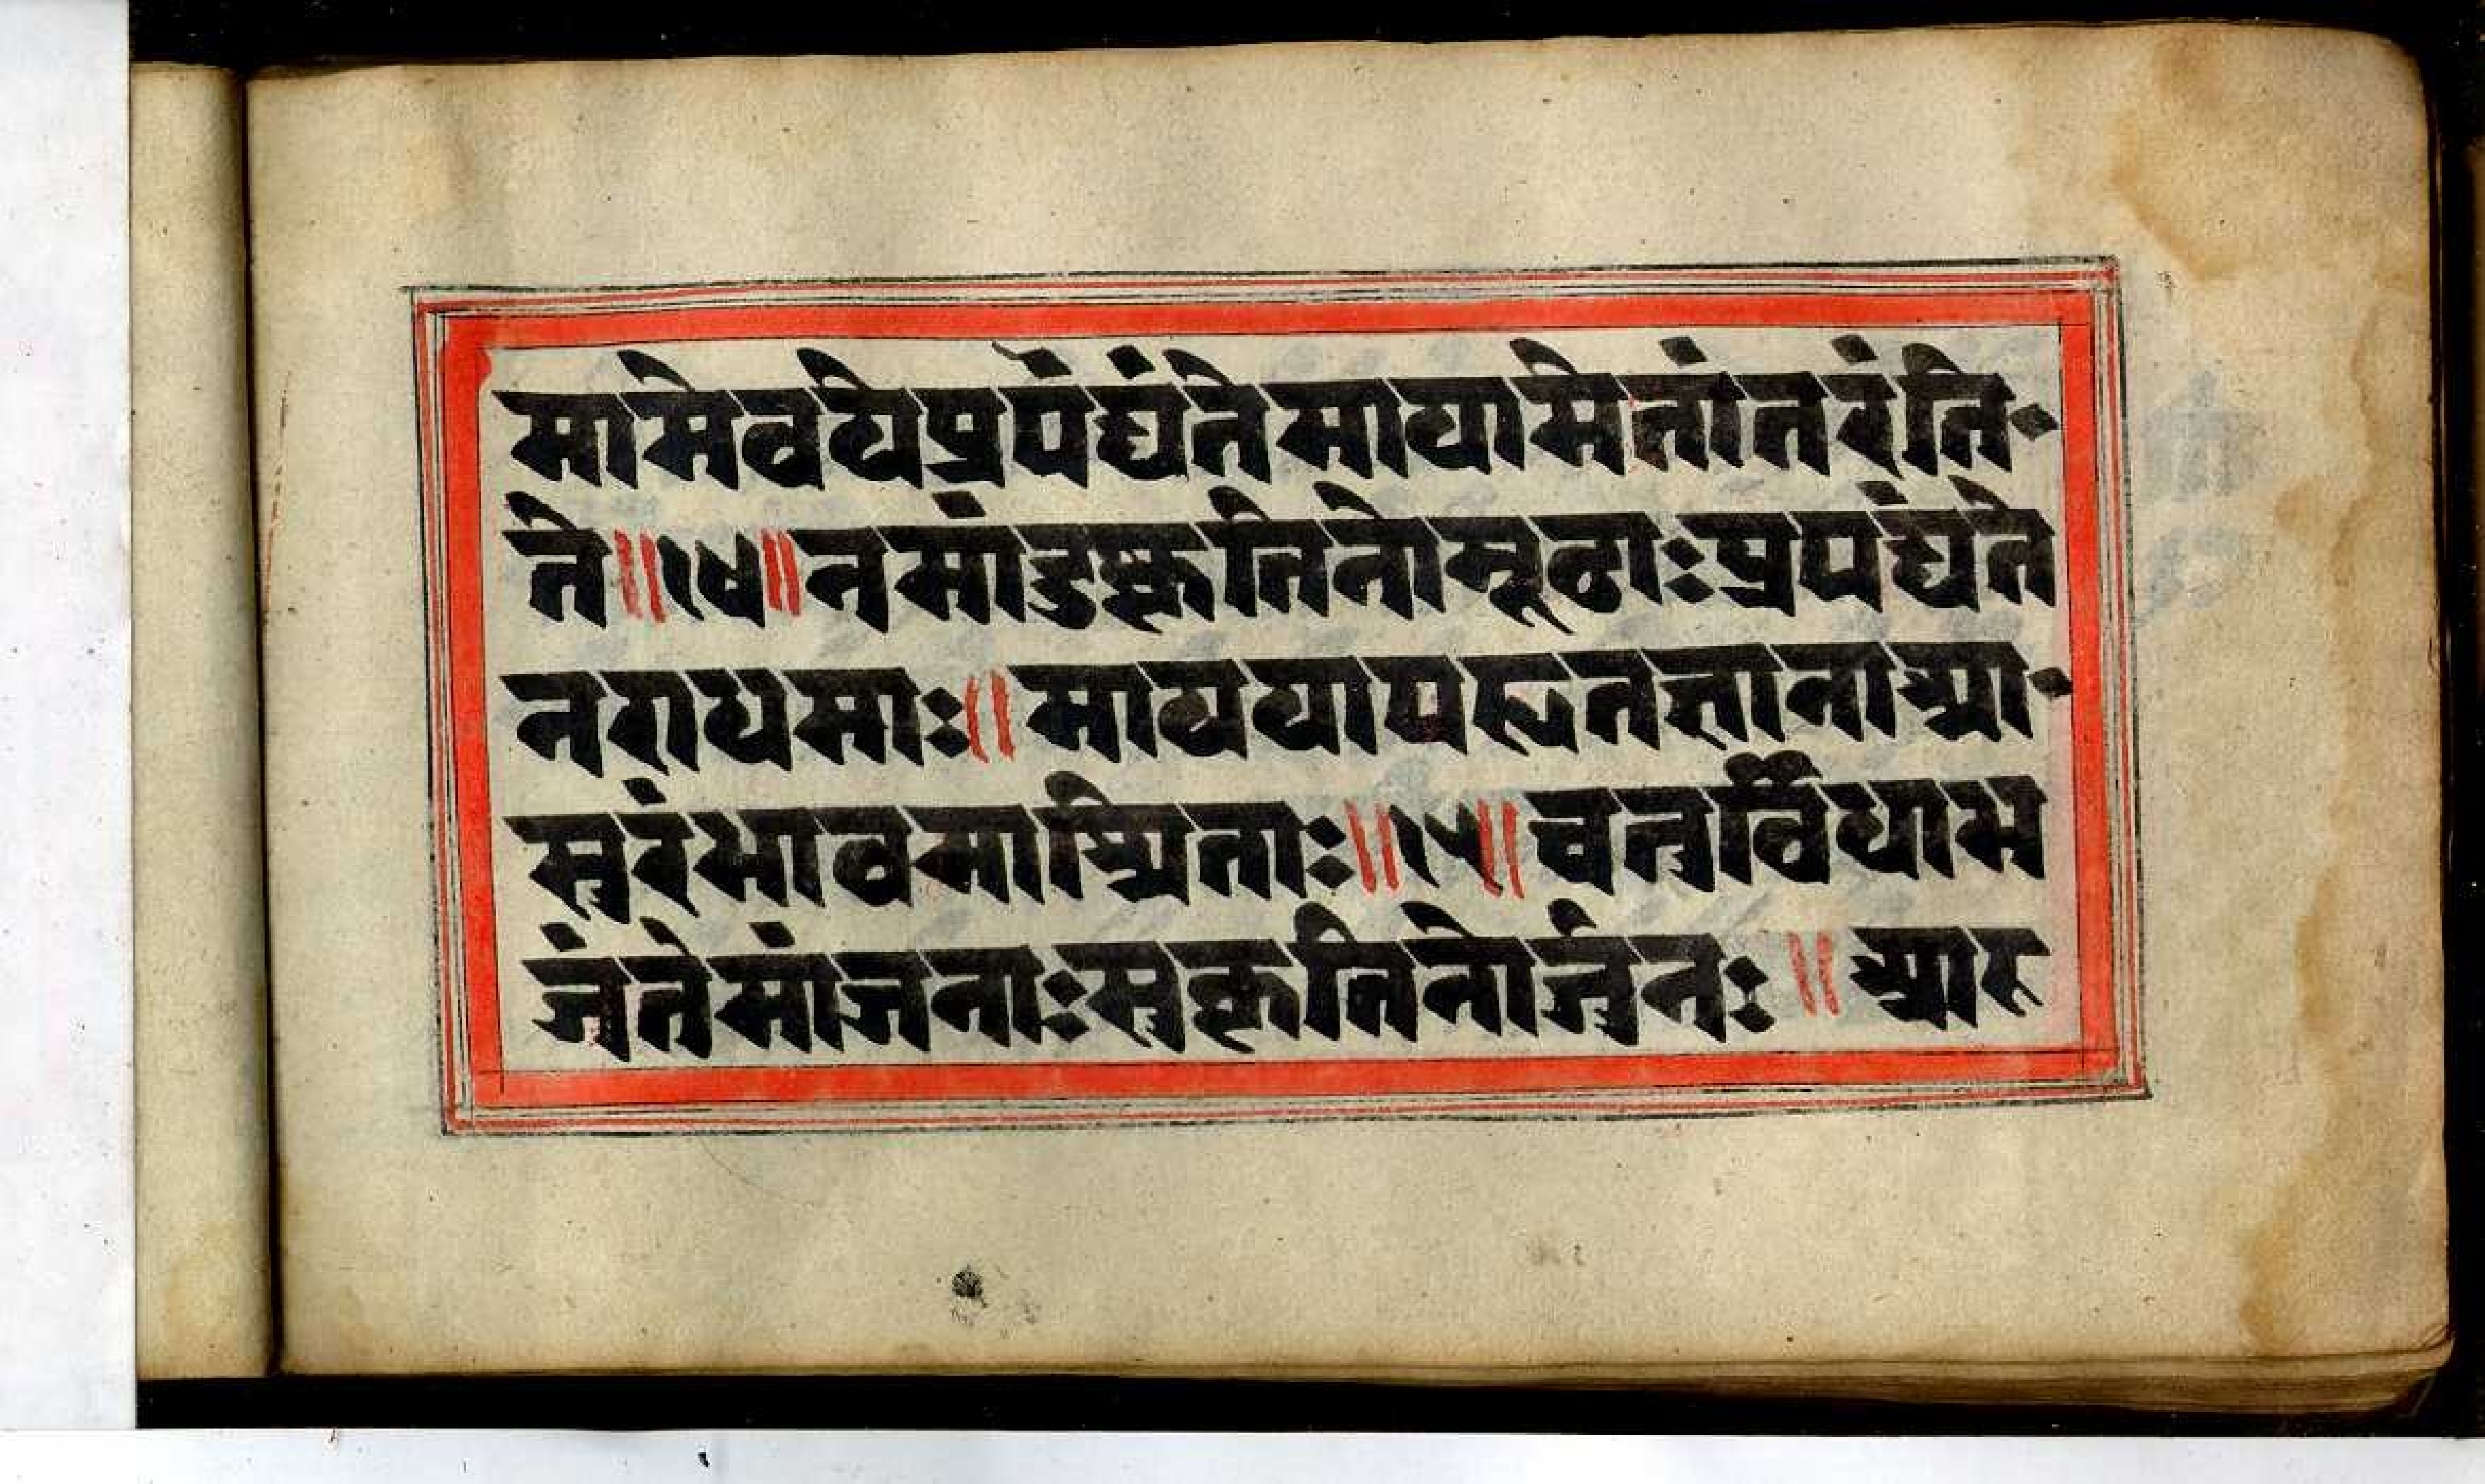 मामेवयेप्रपंद्यंतेमायामेतांतरंति
ते॥१४॥नमांदुष्कृतिनोमूढाःप्रपद्यंते
नराधमाः॥माययापहृतज्ञानाआ
सुरंभावमाश्रिताः॥१५॥चतुर्विधाभ
जंतेमांजनाःसुकृतिनोर्जुनः॥आर